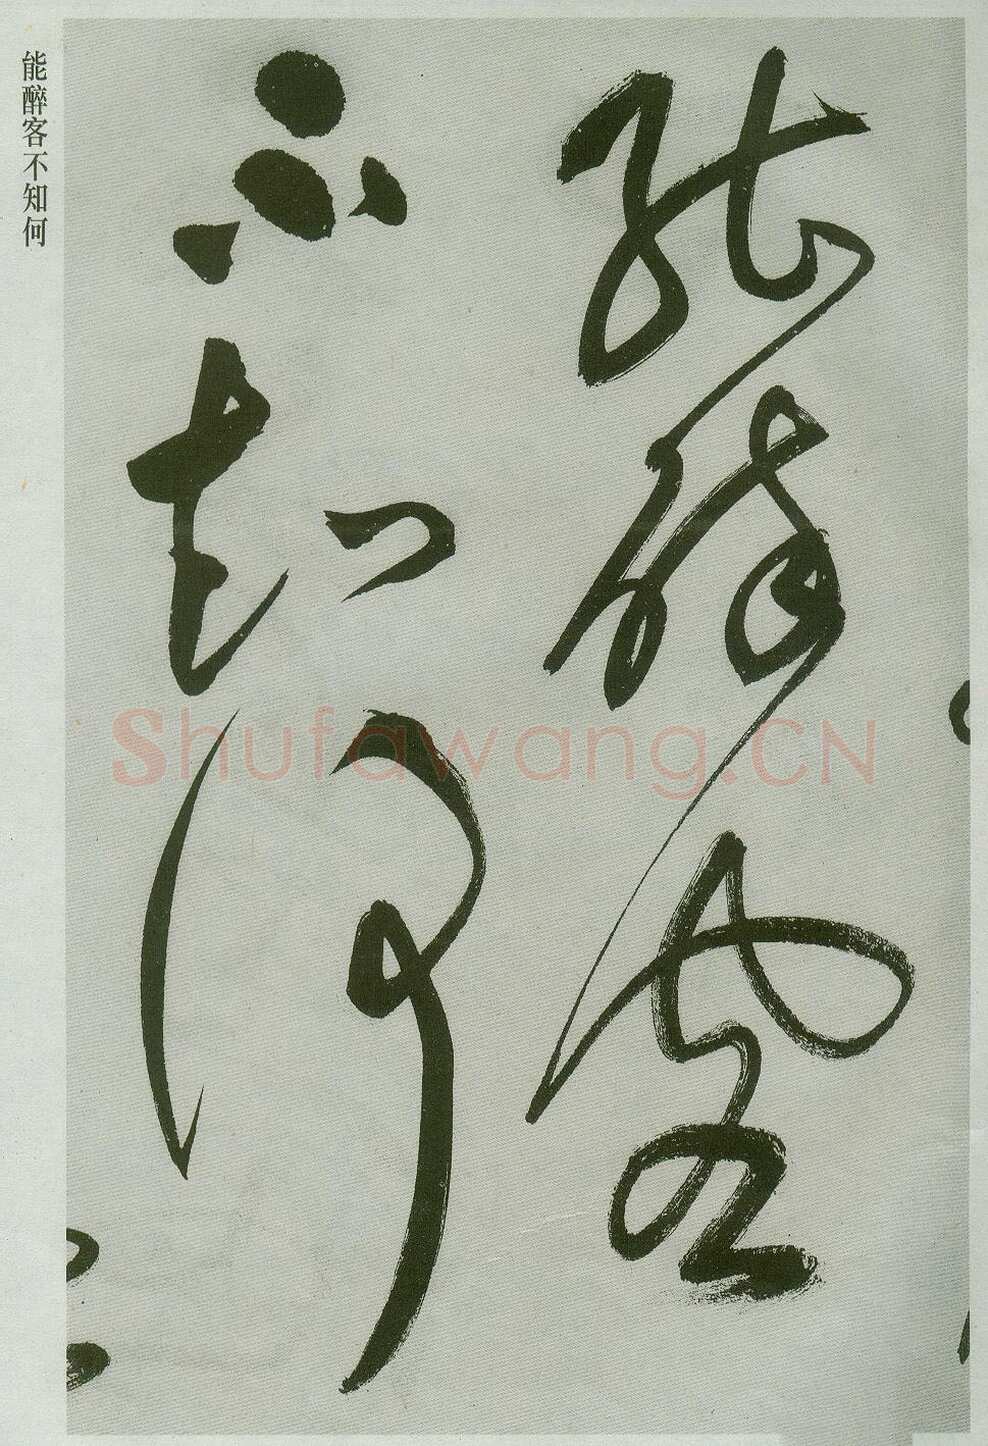 能醉客
不知何
能醉客不知何
Shufawang.CN